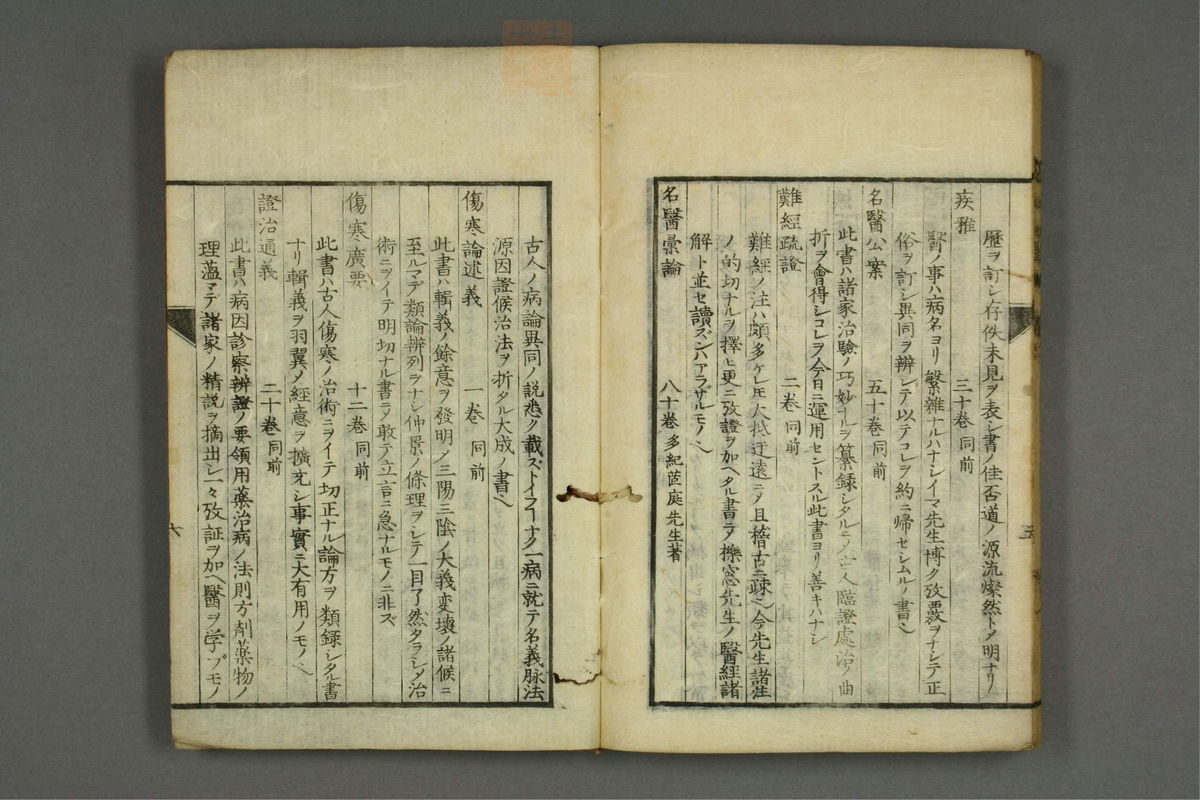 歷ヲ訂シ存佚未見ヲ表シ書ノ佳否道ノ源流燦然トノ明ナリ
疾雅 三十卷 同前
醫ノ事ハ病名ヨリ繁雜ナルハナシイマ先生博ク攷覈ヲナシテ正
俗ヲ訂シ異同ヲ辨シテ以テコレヲ約ニ帰セシムルノ書ㄟ
名醫公案 五十卷 同前
此書ハ諸家治驗ノ巧妙ナルヲ纂錄シタルモノ古人臨證處治ノ曲
折ヲ會得シコレヲ今日ニ運用セントスル此書ヨリ善キハナシ
難經疏證 二卷 同前
難經ノ注ハ頗多ケレ𪜈大抵迂遠ニノ且稽古ニ疎ㄟ今先生諸注
ノ的切ナルヲ擇ヒ更ニ攷證ヲ加ヘタル書ニノ櫟窓先生ノ醫經諸
解ト並セ讀ズンハアラザルモノㄟ
名醫彙論 八十卷 多紀茝庭先生著
古人ノ病論異同ノ説悉ク載ストイフヿナク一病ニ就テ名義脉法
源因證候治法ヲ折タル大成ノ書ㄟ
傷寒論述義 一卷 同前
此書ハ輯義ノ餘意ヲ發明ノ三陽三陰ノ大義変壞ノ諸候ニ
至ルマデ類論辨列ヲナシ仲景ノ條理ヲシテ一目了然タラシメ治
術ニヲイテ明切ナル書ニノ敢テ立言ニ急ナルモノニ非ズ
傷寒廣要 十二卷 同前
此書ハ古人傷寒ノ治術ニヲイテ切正ナル論方ヲ類錄シタル書
ナリ輯義ヲ羽翼ノ經意ヲ擴充シ事實ニ大有用ノモノㄟ
證治通義 二十卷 同前
此書ハ病因診察辨證ノ要領用藥治病ノ法則方劑藥物ノ
理蘊マデ諸家ノ精説ヲ摘出シ一々攷証ヲ加ヘ醫ヲ学ブモノ
六